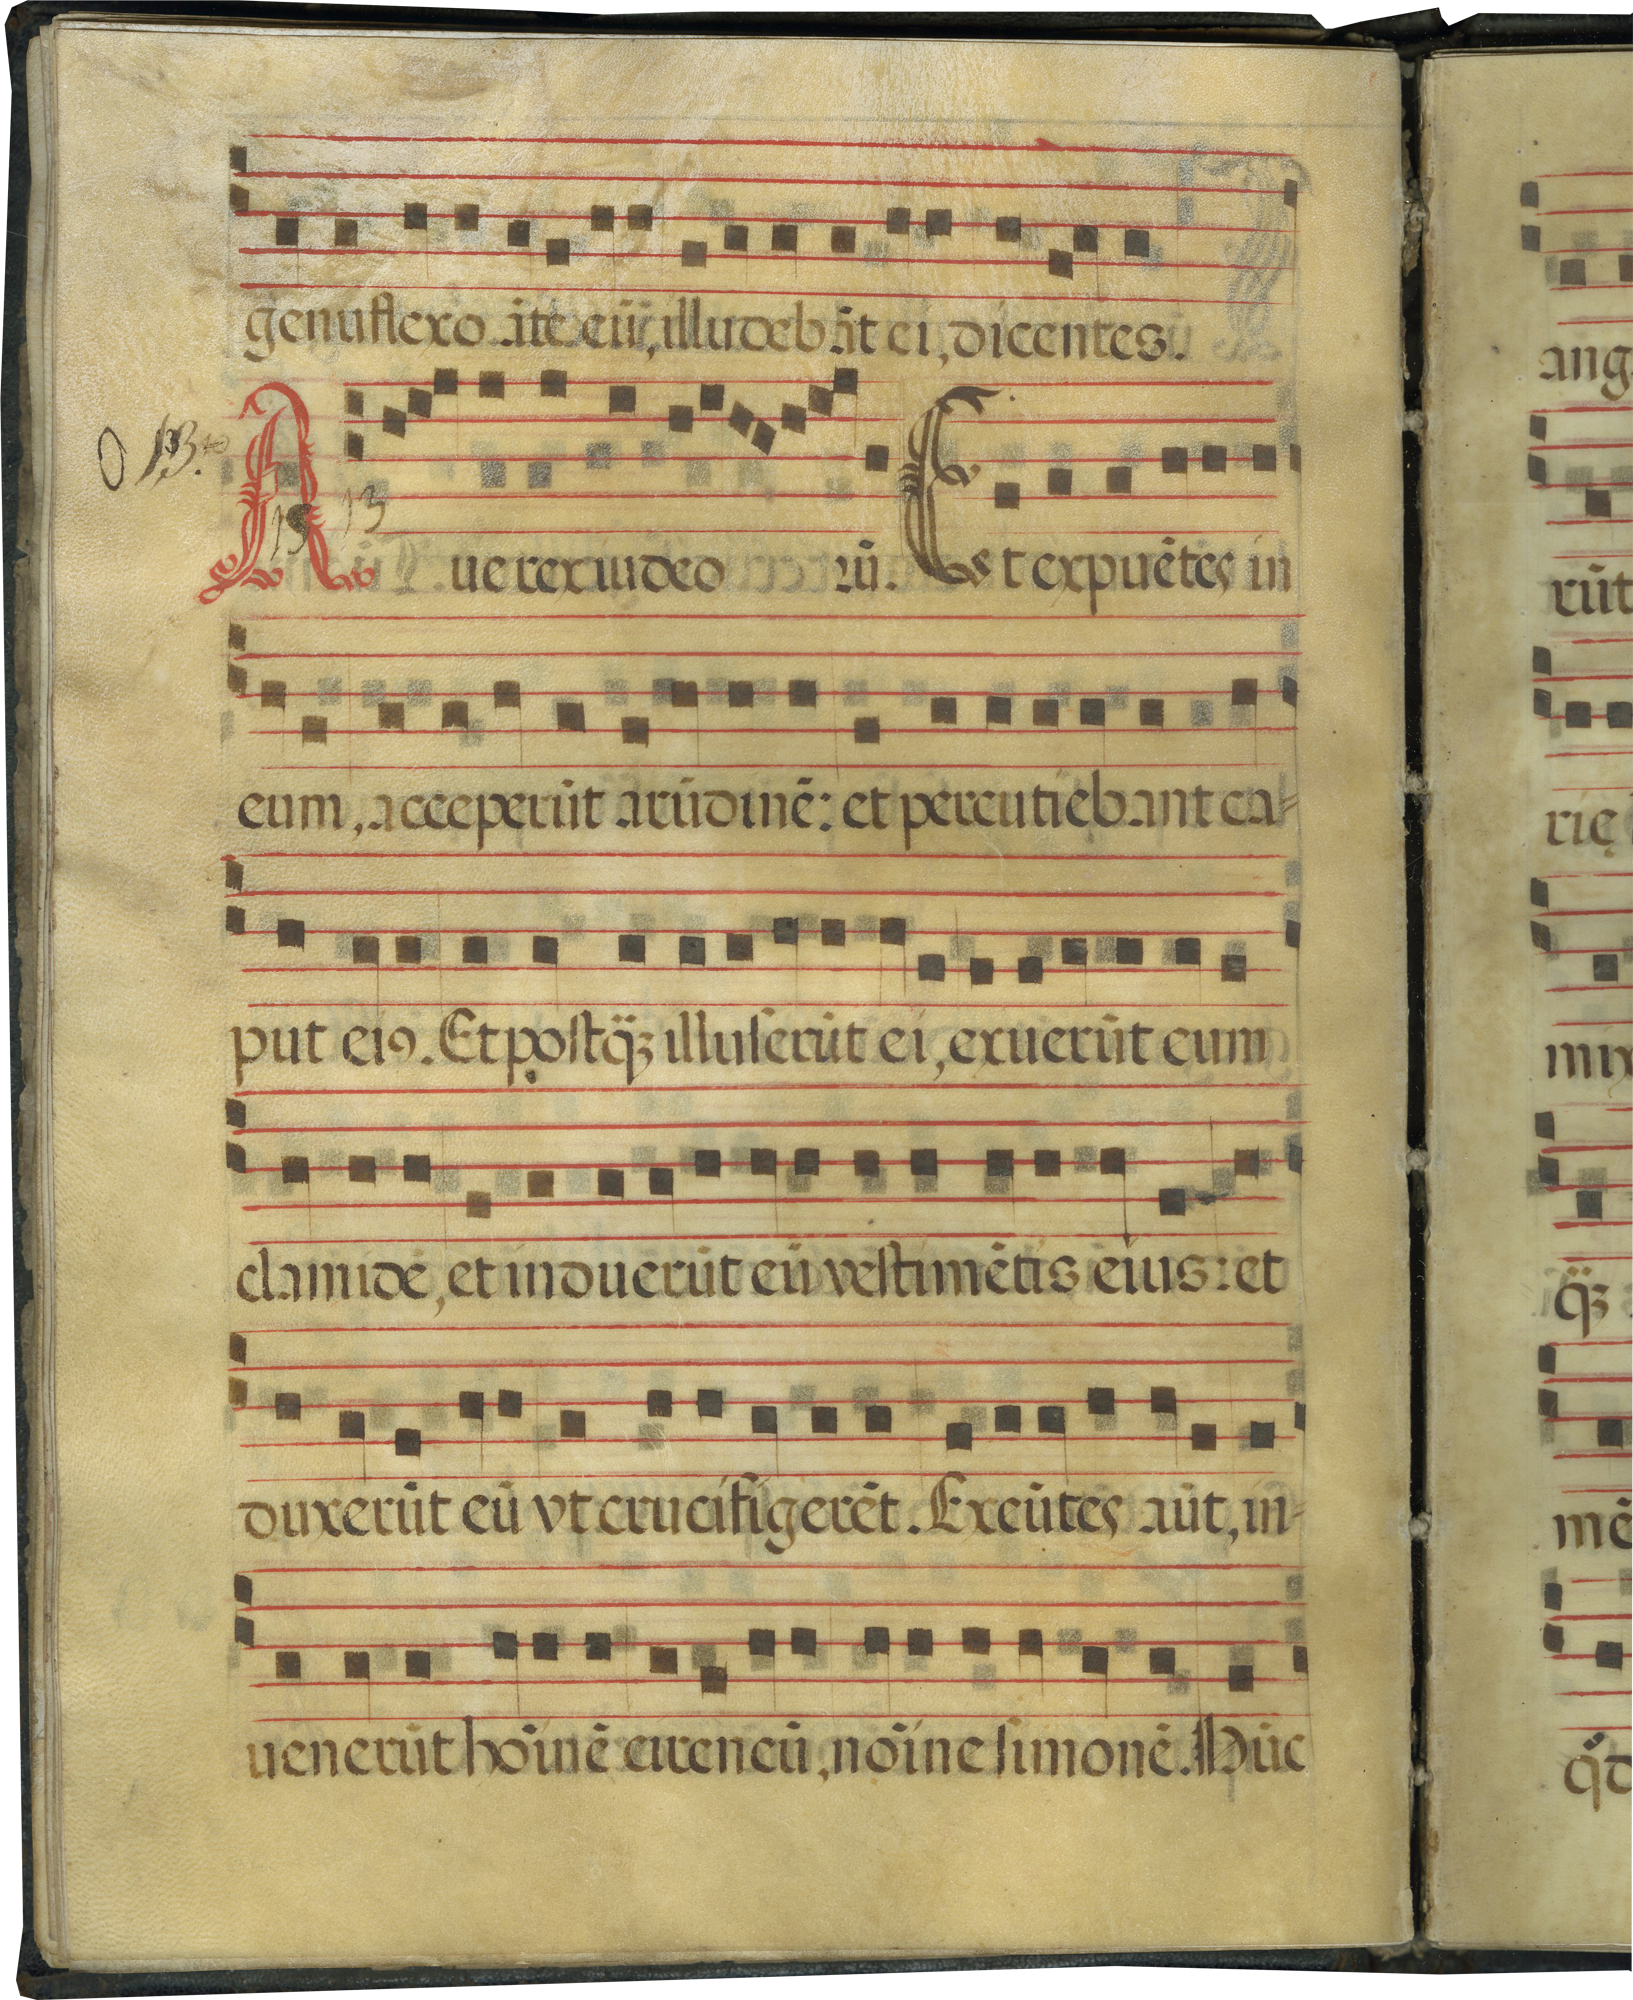 genuflexo ãte eũ, illudebãt ei, dicentes.
O 13.to
15 13
Aue rex iudeorũ. Et expuẽtes in
eum, acceperũt arũdinẽ: et percutiebant ca-
put ei9. Et postq̃ꝫ illuserũt ei, exuerũt eum
clamidẽ, et induerũt eũ vestimẽtis eius: et
duxerũt eũ vt crucifigerẽt. Exeũtes aũt, in-
uenerũt hoĩnẽ cireneũ, noĩne simonẽ. Hũc
ang
rũt
rię
mix
q̃ꝫ
mẽ